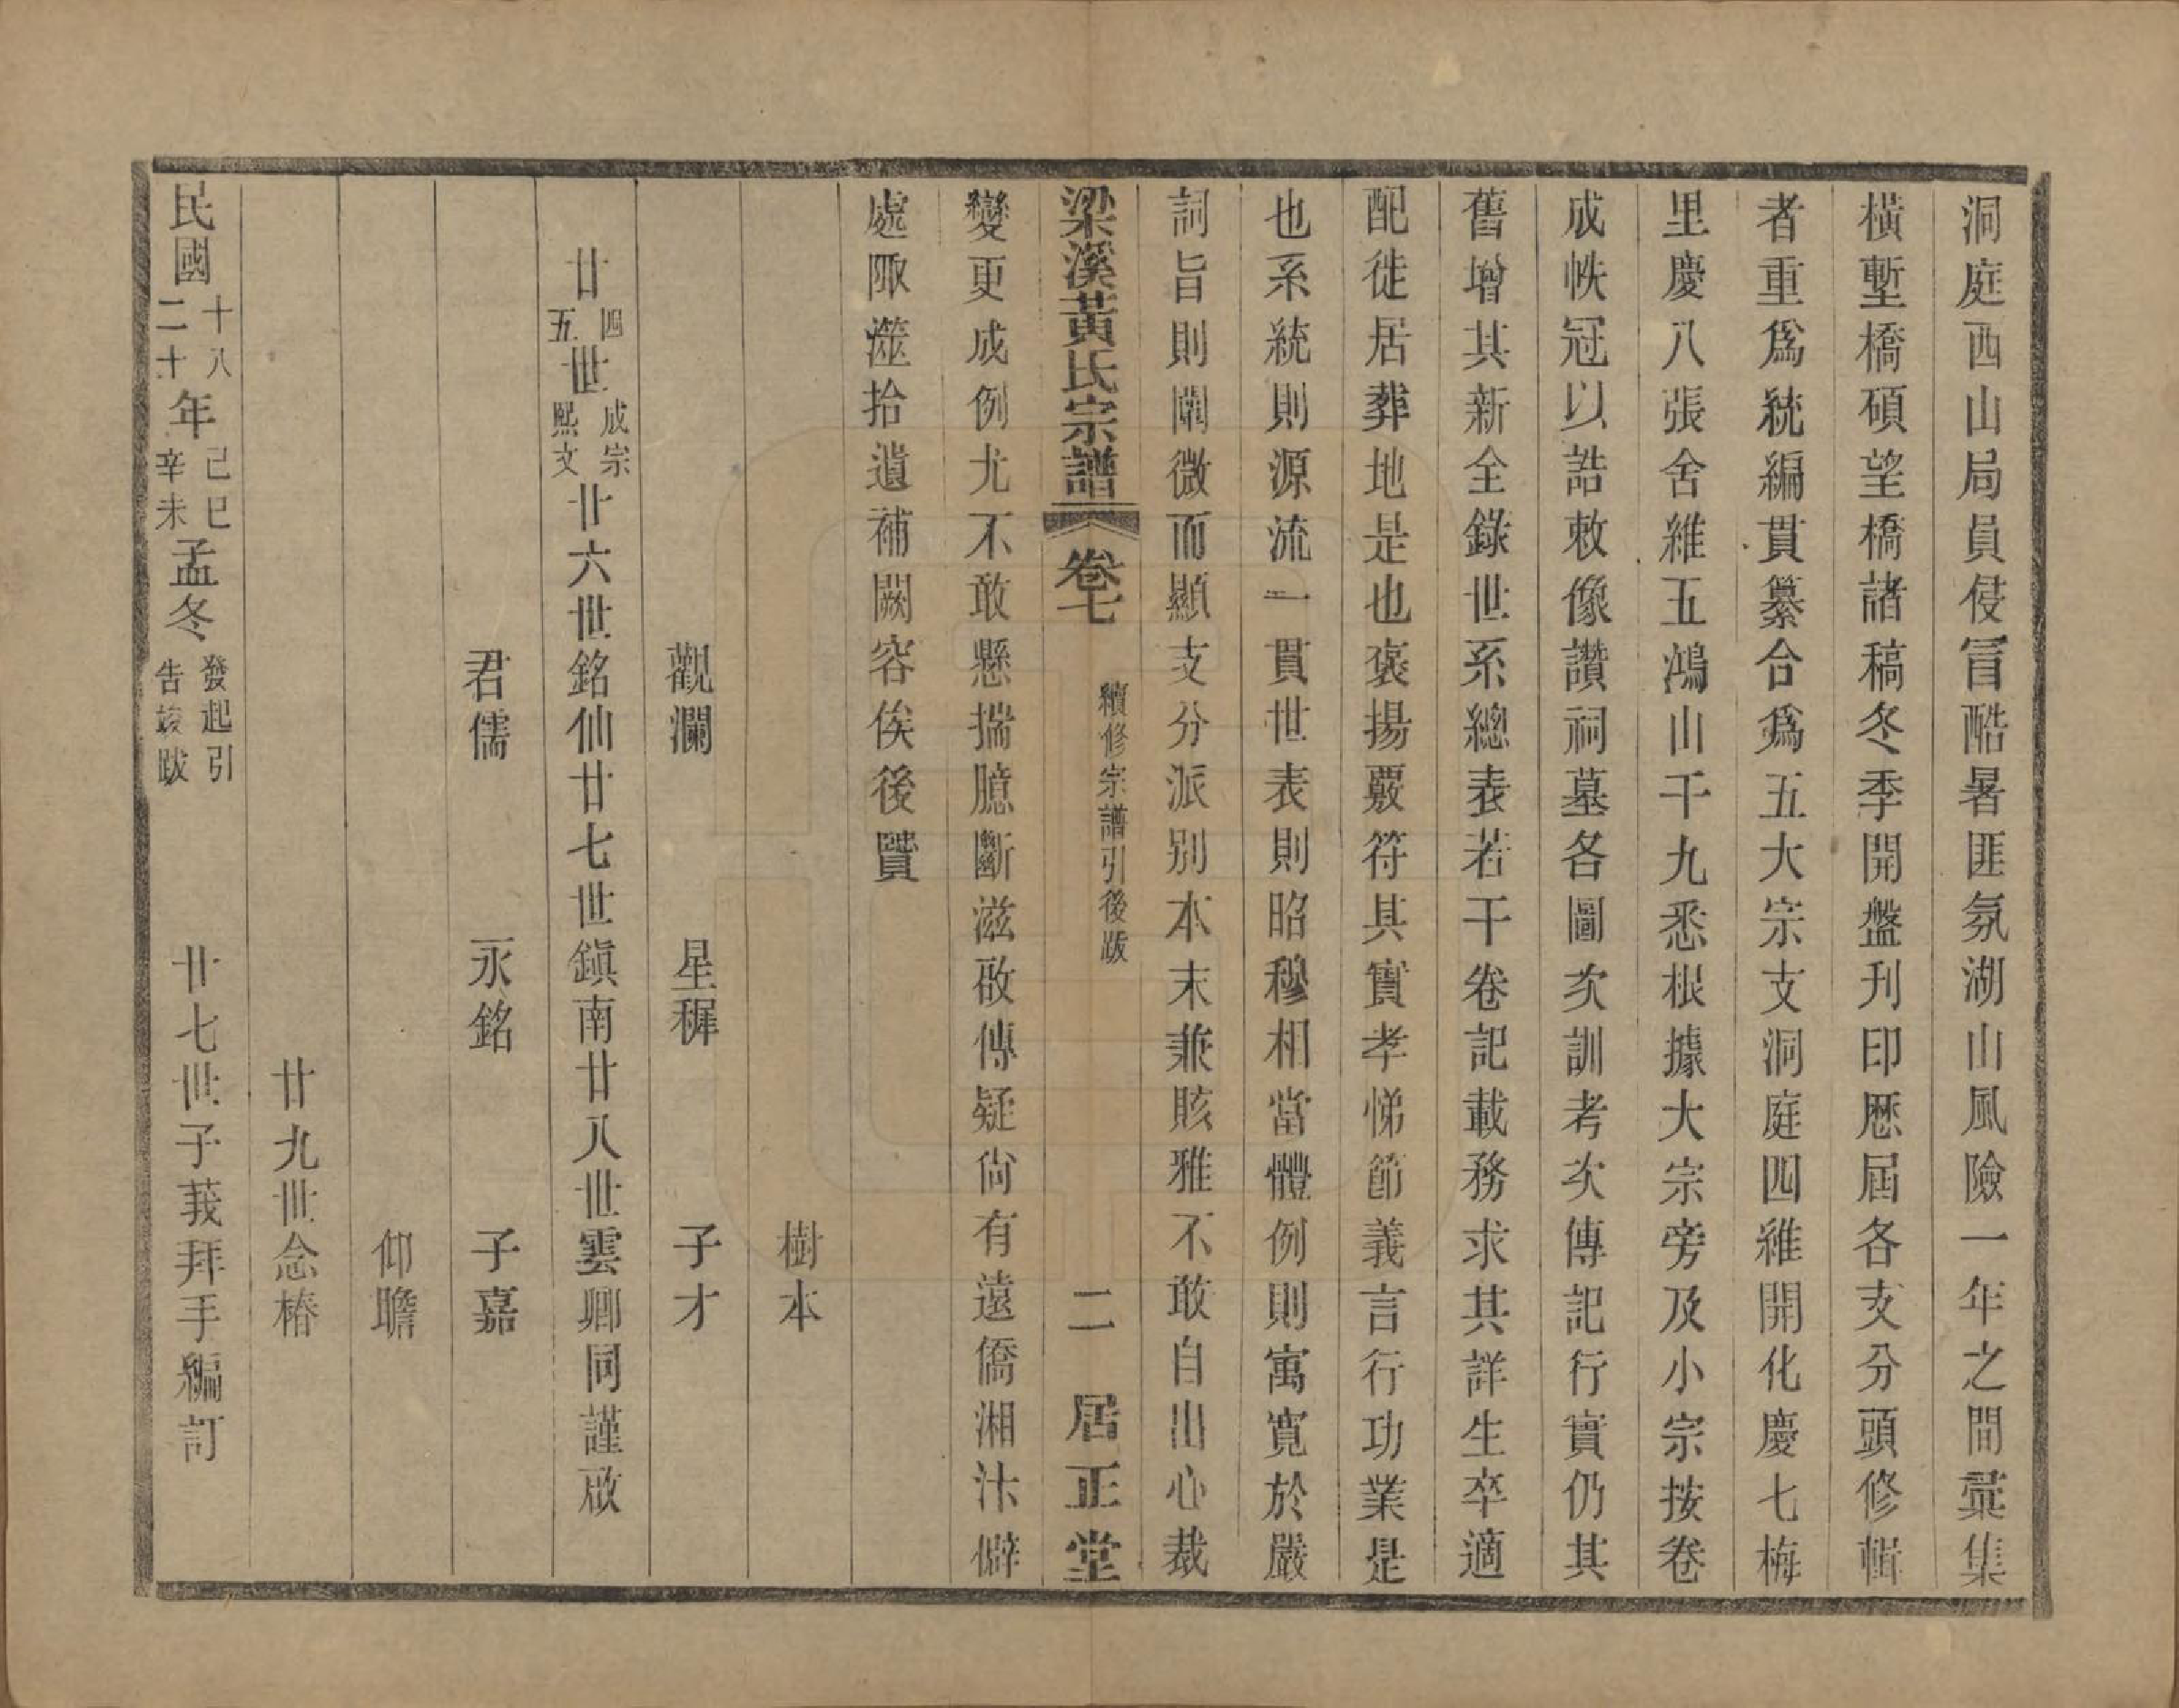 洞庭西山局員侵冒酷暑匪氛湖山風險一年之間彙集
橫塹橋碩望橋諸稿冬季開盤刊印歷屆各支分頭修輯
者重爲統編貫纂合爲五大宗支洞庭四維開化慶七梅
里慶八張舍維五鴻山千九悉根據大宗旁及小宗按卷
成帙冠以誥敕像讚祠墓各圖次訓考次傳記行實仍其
舊增其新全錄世系總表若干卷記載務求其詳生卒適
配徙居葬地是也褒揚覈符其實孝悌節義言行功業是
也系統則源流一貫世表則昭穆相當體例則寓寬於嚴
詞旨則闡微而顯支分派別本末兼賅雅不敢自出心裁
梁溪黃氏宗譜 卷七 續修宗譜引後跋 二 居正堂
變更成例尤不敢懸揣臆斷滋啟傳疑尙有遠僑湘汴僻
處陬澨拾遺補闕容俟後賢
樹本
觀瀾 星穉 子才
廿四五世成宗熙文廿六世銘仙廿七世鎭南廿八世雲卿同謹啟
君儒 永銘 子嘉
仰瞻
廿九世念椿
民國十八二十年己巳辛未孟冬發起引告竣跋 廿七世子莪拜手編訂